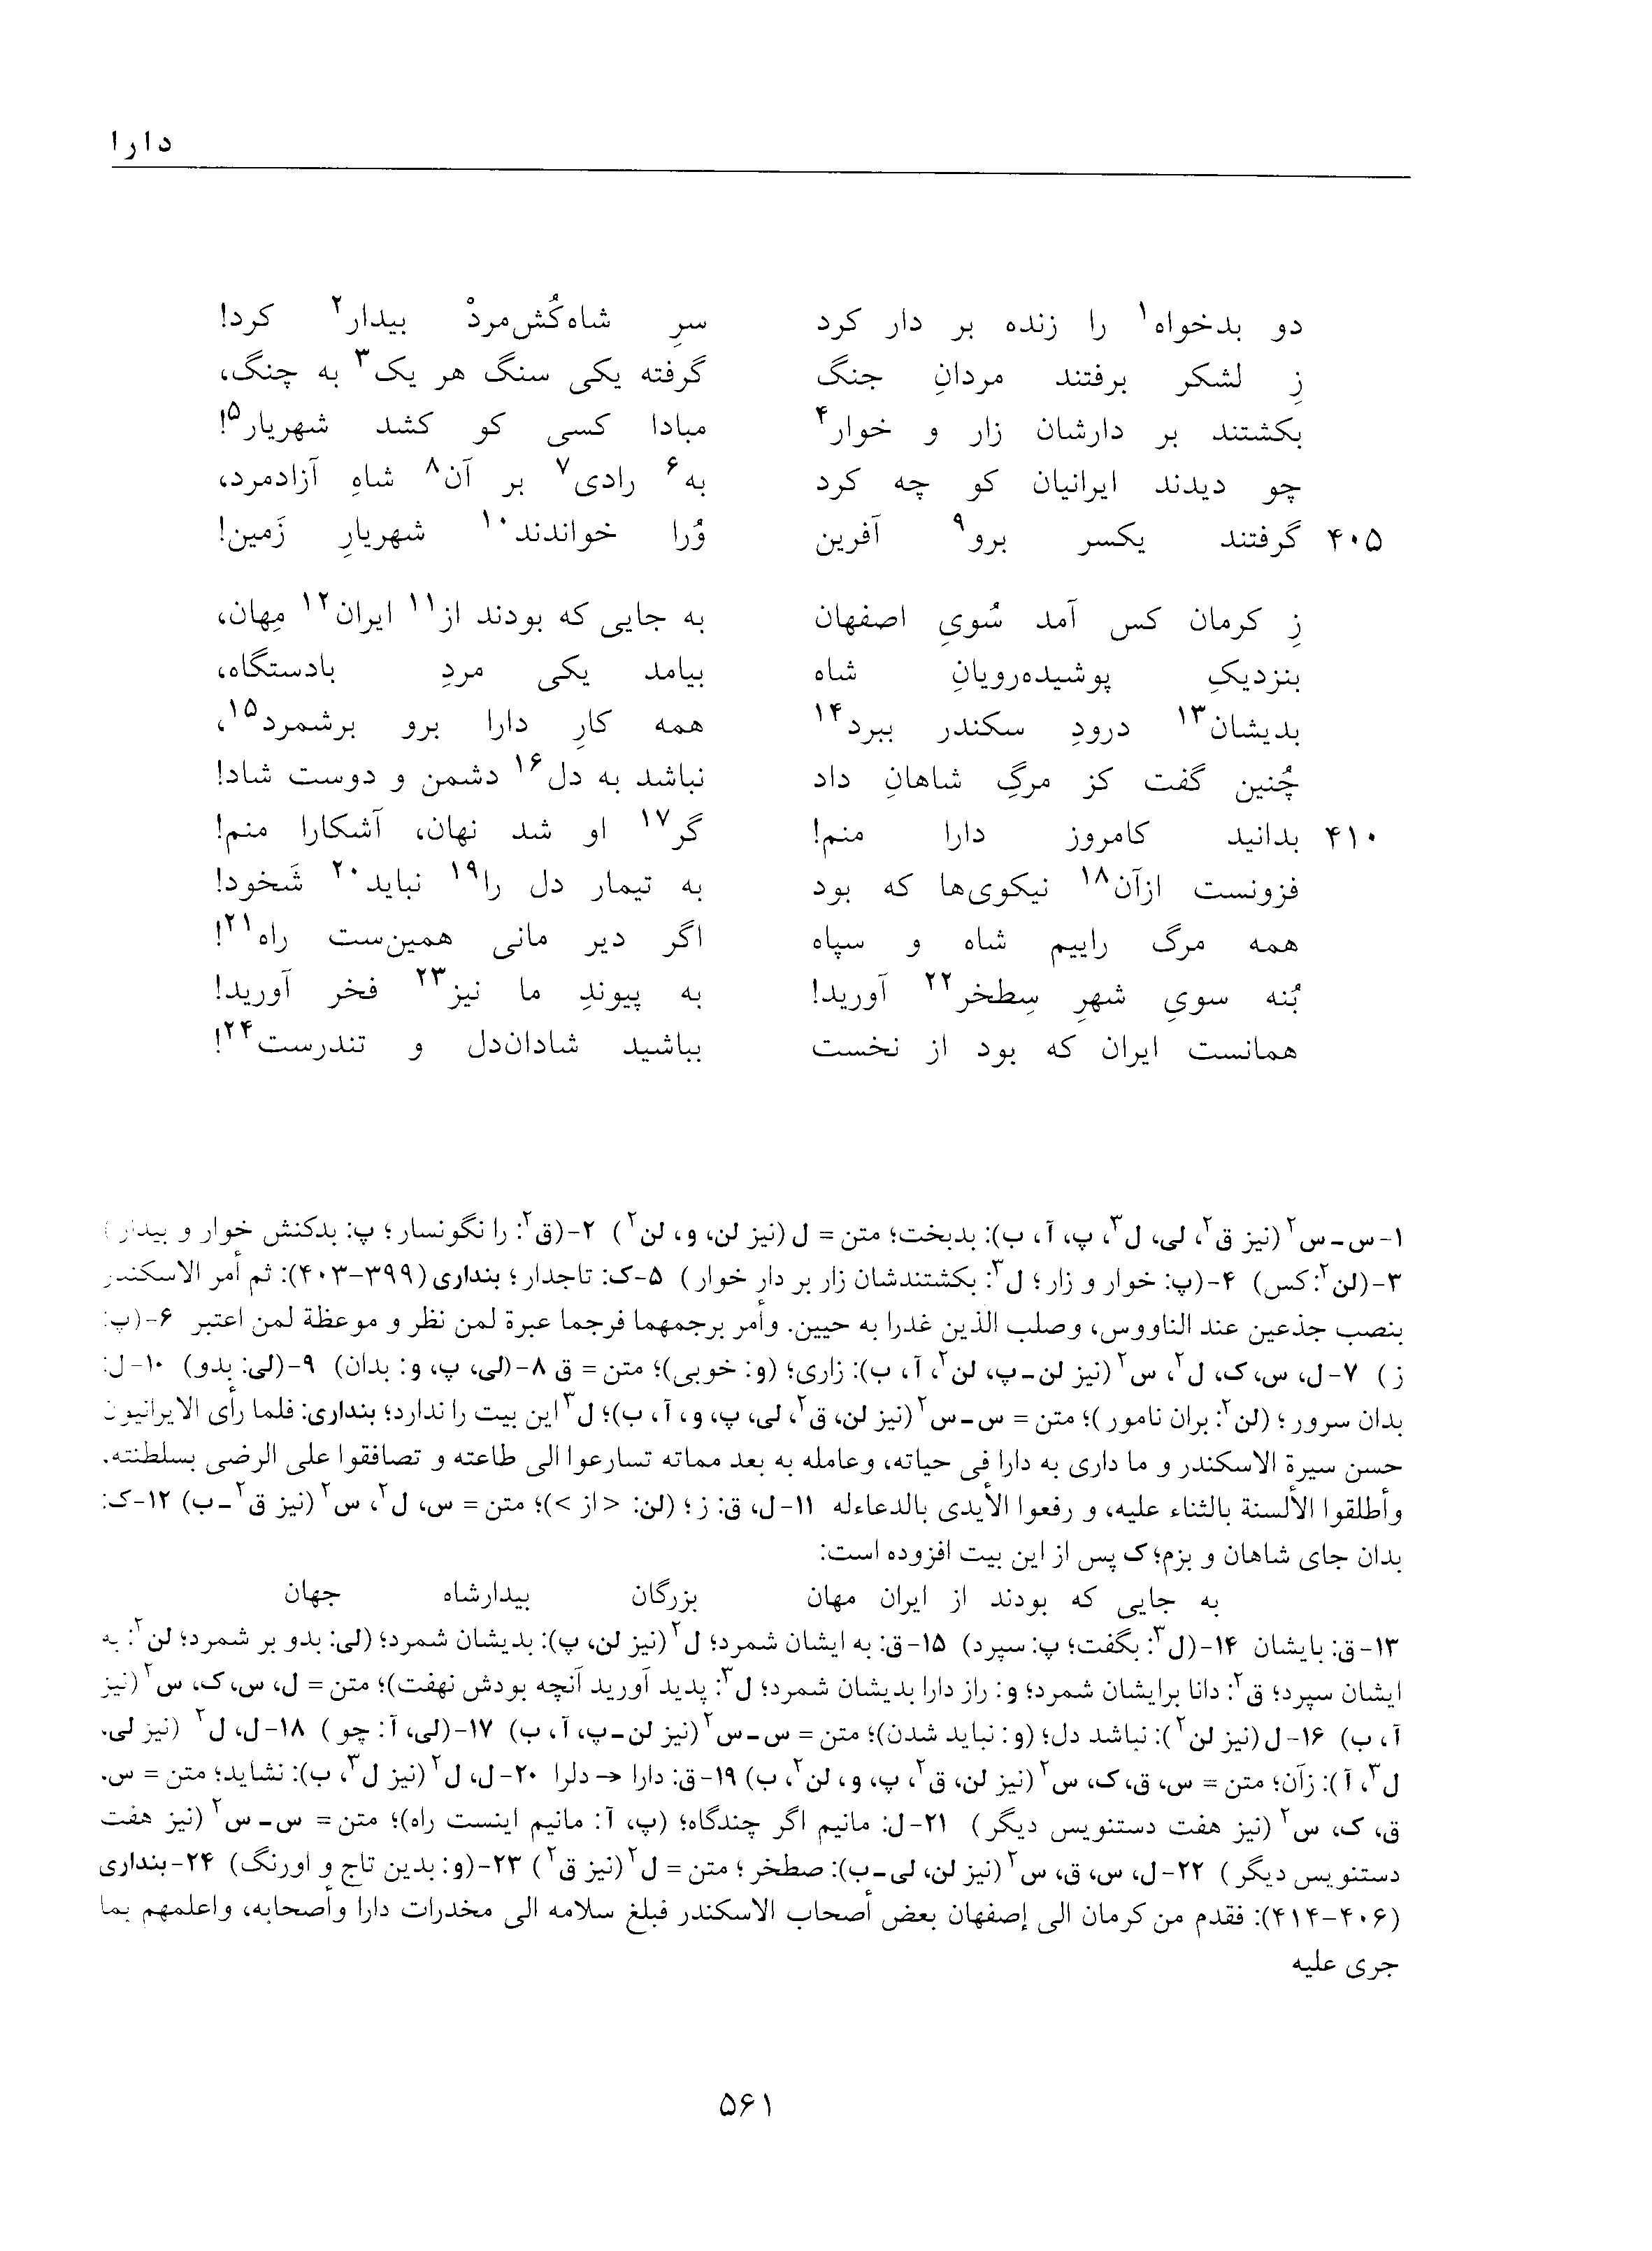 دارا
دو بدخواه۱ را زنده بر دار کرد سرِ شاه‌کُش‌مردْ بیدار۲ کرد!
زِ لشکر برفتند مردانِ جنگ گرفته یکی سنگ هر یک۳ به چنگ،
بکشتند بر دارشان زار و خوار۴ مبادا کسی کو کشد شهریار۵!
چو دیدند ایرانیان کو چه کرد به۶ رادی۷ بر آن۸ شاهِ آزادمرد،
۴۰۵ گرفتند یکسر برو۹ آفرین وُرا خواندند۱۰ شهریارِ زَمین!
زِ کرمان کس آمد سُویِ اصفهان به جایی که بودند از۱۱ ایران۱۲ مِهان،
بنزدیکِ پوشیده‌رویانِ شاه بیامد یکی مردِ بادستگاه،
بدیشان۱۳ درودِ سکندر ببرد۱۴ همه کارِ دارا برو برشمرد۱۵،
چُنین گفت کز مرگِ شاهانِ داد نباشد به دل۱۶ دشمن و دوست شاد!
۴۱۰ بدانید کامروز دارا منم! گر۱۷ او شد نهان، آشکارا منم!
فزونست ازآن۱۸ نیکوی‌ها که بود به تیمار دل را۱۹ نباید۲۰ شَخود!
همه مرگ راییم شاه و سپاه اگر دیر مانی همین‌ست راه۲۱!
بُنه سویِ شهرِ سِطخر۲۲ آورید! به پیوندِ ما نیز۲۳ فخر آورید!
همانست ایران که بود از نخست بباشید شادان‌دل و تندرست۲۴!
۱-س-س۲ (نیز ق۲، لی، ل۳، پ، آ، ب): بدبخت؛ متن = ل (نیز لن، و، لن۲) ۲-(ق۲: را نگونسار؛ پ: بدکنش خوار و بیدار)
۳-(لن۲: کس) ۴-(پ: خوار و زار؛ ل۳: بکشتندشان زار بر دار خوار) ۵-ک: تاجدار؛ بنداری (۳۹۹-۴۰۳): ثم أمر الاسکندر
بنصب جذعین عند الناووس، و صلب الذین غدرا به حیین. وأمر برجمهما فرجما عبرة لمن نظر و موعظة لمن اعتبر ۶-(پ:
ز) ۷-ل، س، ک، ل۲، س۲ (نیز لن-پ، لن۲، آ، ب): زاری؛ (و: خوبی)؛ متن = ق ۸-(لی، پ، و: بدان) ۹-(لی: بدو) ۱۰-ل:
بدان سرور؛ (لن۲: بران نامور)؛ متن = س-س۲ (نیز لن، ق۲، لی، پ، و، آ، ب)؛ ل۳ این بیت را ندارد؛ بنداری: فلما رأی الایرانیون
حسن سیرة الاسکندر و ما داری به دارا فی حیاته، وعامله به بعد مماته تسارعوا الی طاعته و تصافقوا علی الرضی بسلطنته.
وأطلقوا الألسنة بالثناء علیه، و رفعوا الأیدی بالدعاءله ۱۱-ل، ق: ز؛ (لن: <از>)؛ متن = س، ل۲، س۲ (نیز ق۲-ب) ۱۲-ک:
بدان جای شاهان و بزم؛ ک پس از این بیت افزوده است:
به جایی که بودند از ایران مهان بزرگان بیدارشاه جهان
۱۳-ق: بایشان ۱۴-(ل۳: بگفت؛ پ: سپرد) ۱۵-ق: به ایشان شمرد؛ ل۲ (نیز لن، پ): بدیشان شمرد؛ (لی: بدو بر شمرد؛ لن۲: به
ایشان سپرد؛ ق۲: دانا برایشان شمرد؛ و: راز دارا بدیشان شمرد؛ ل۳: پدید آورید آنچه بودش نهفت)؛ متن = ل، س، ک، س۲ (نیز
آ، ب) ۱۶-ل (نیز لن۲): نباشد دل؛ (و: نباید شدن)؛ متن = س-س۲ (نیز لن-پ، آ، ب) ۱۷-(لی، آ: چو) ۱۸-ل، ل۲ (نیز لی،
ل۳، آ): زآن؛ متن = س، ق، ک، س۲ (نیز لن، ق۲، پ، و، لن۲، ب) ۱۹-ق: دارا → دلرا ۲۰-ل، ل۲ (نیز ل۳، ب): نشاید؛ متن = س،
ق، ک، س۲ (نیز هفت دستنویس دیگر) ۲۱-ل: مانیم اگر چندگاه؛ (پ، آ: مانیم اینست راه)؛ متن = س-س۲ (نیز هفت
دستنویس دیگر) ۲۲-ل، س، ق، س۲ (نیز لن، لی-ب): صطخر؛ متن = ل۲ (نیز ق۲) ۲۳-(و: بدین تاج و اورنگ) ۲۴-بنداری
(۴۰۶-۴۱۴): فقدم من کرمان الی إصفهان بعض أصحاب الاسکندر فبلغ سلامه الی مخدرات دارا وأصحابه، واعلمهم بما
جری علیه
۵۶۱